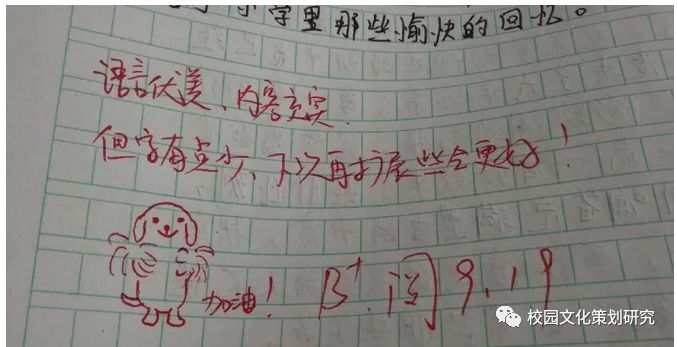 学里那些愉快的回忆。
语言优美、内容充实.
但字有点少、下次再扩展些会更好！
加油！ B+. 阅 9.19
校园文化策划研究